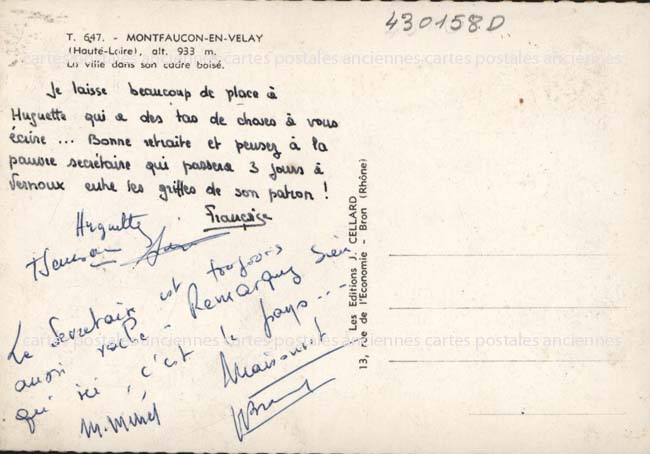 430158D
T. 647. - MONTFAUCON-EN-VELAY
(Haute-Loire), alt. 933 m.
La ville dans son cadre boisé.
cartes postales anciennes cartes postales anciennes cartes postales anciennes
Je laisse beaucoup de place à
Huguette qui a des tas de choses à vous
écrire ... Bonne retraite et pensez à la
pauvre secrétaire qui passera 3 jours à
Vernoux entre les griffes de son patron !
Françoise
Huguette
Le Secrétaire est toujours
aussi vache - Remarquez bien
qui ici, c'est le pays...
cartes postales anciennes cartes postales anciennes cartes postales anciennes
Les Editions J. CELLARD
13, rue de l'Economie - Bron (Rhône)